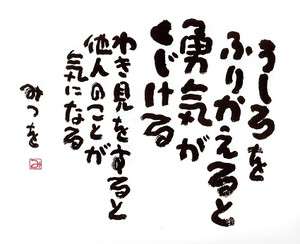 うしろを
ふりかえると
勇気が
くじける
わき見をすると
他人のことが
気になる
みつを
み